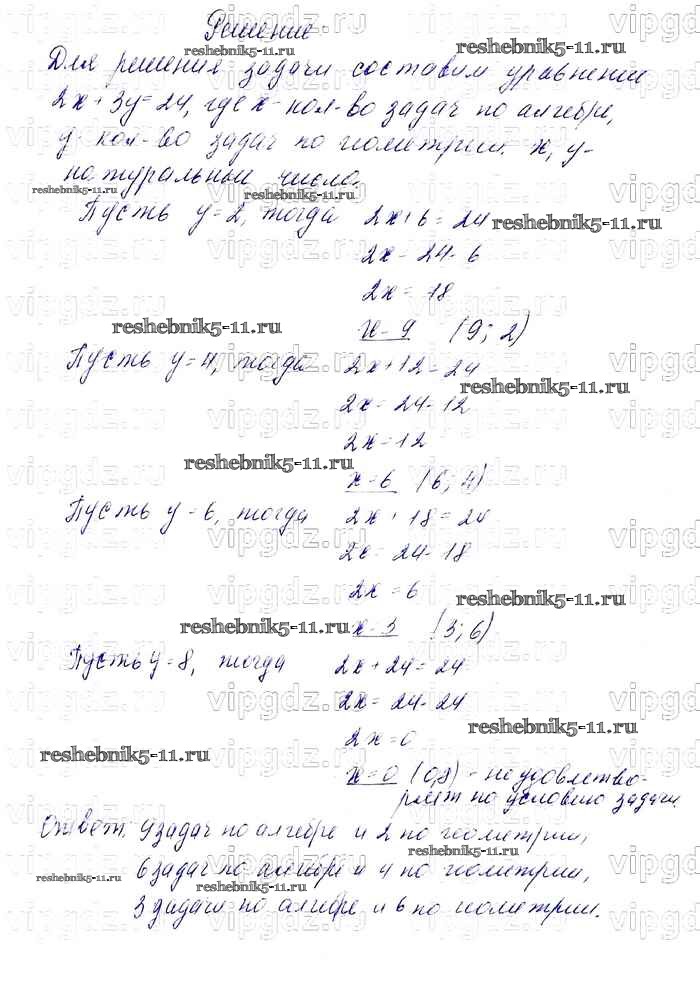 Решение
Для решения задачи составим уравнение
2x+3y=24, где x-кол-во задач по алгебре,
y-кол-во задач по геометрии. x, y-
натуральные числа.
Пусть y=2, тогда 2x+6=24
2x=24-6
2x=18
x=9 (9; 2)
Пусть y=4, тогда 2x+12=24
2x=24-12
2x=12
x=6 (6; 4)
Пусть y=6, тогда 2x+18=24
2x=24-18
2x=6
x=3 (3; 6)
Пусть y=8, тогда 2x+24=24
2x=24-24
2x=0
x=0 (0,8) - не удовлетво-
ряет по условию задачи.
Ответ: 9 задач по алгебре и 2 по геометрии,
6 задач по алгебре и 4 по геометрии,
3 задачи по алгебре и 6 по геометрии.
reshebnik5-11.ru
vipgdz.ru